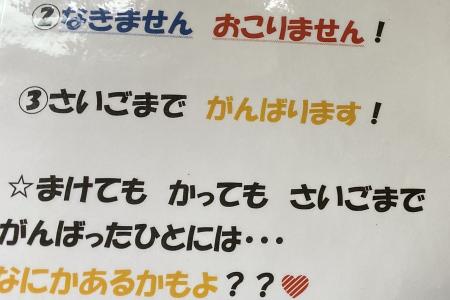 ②なきません おこりません！
③さいごまで がんばります！
☆まけても かっても さいごまで
がんばったひとには・・・
なにかあるかもよ？？♥